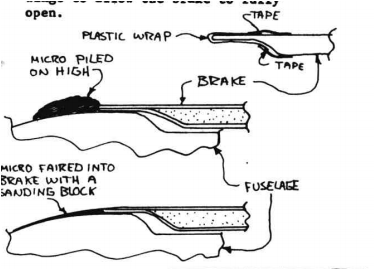 open.
TAPE
PLASTIC WRAP
TAPE
MICRO PILED
ON HIGH
BRAKE
MICRO FAIRED INTO
BRAKE WITH A
SANDING BLOCK
FUSELAGE